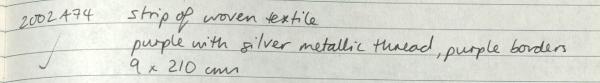 2002 A74 strip of woven textile
purple with silver metallic thread, purple borders
9 x 210 cm